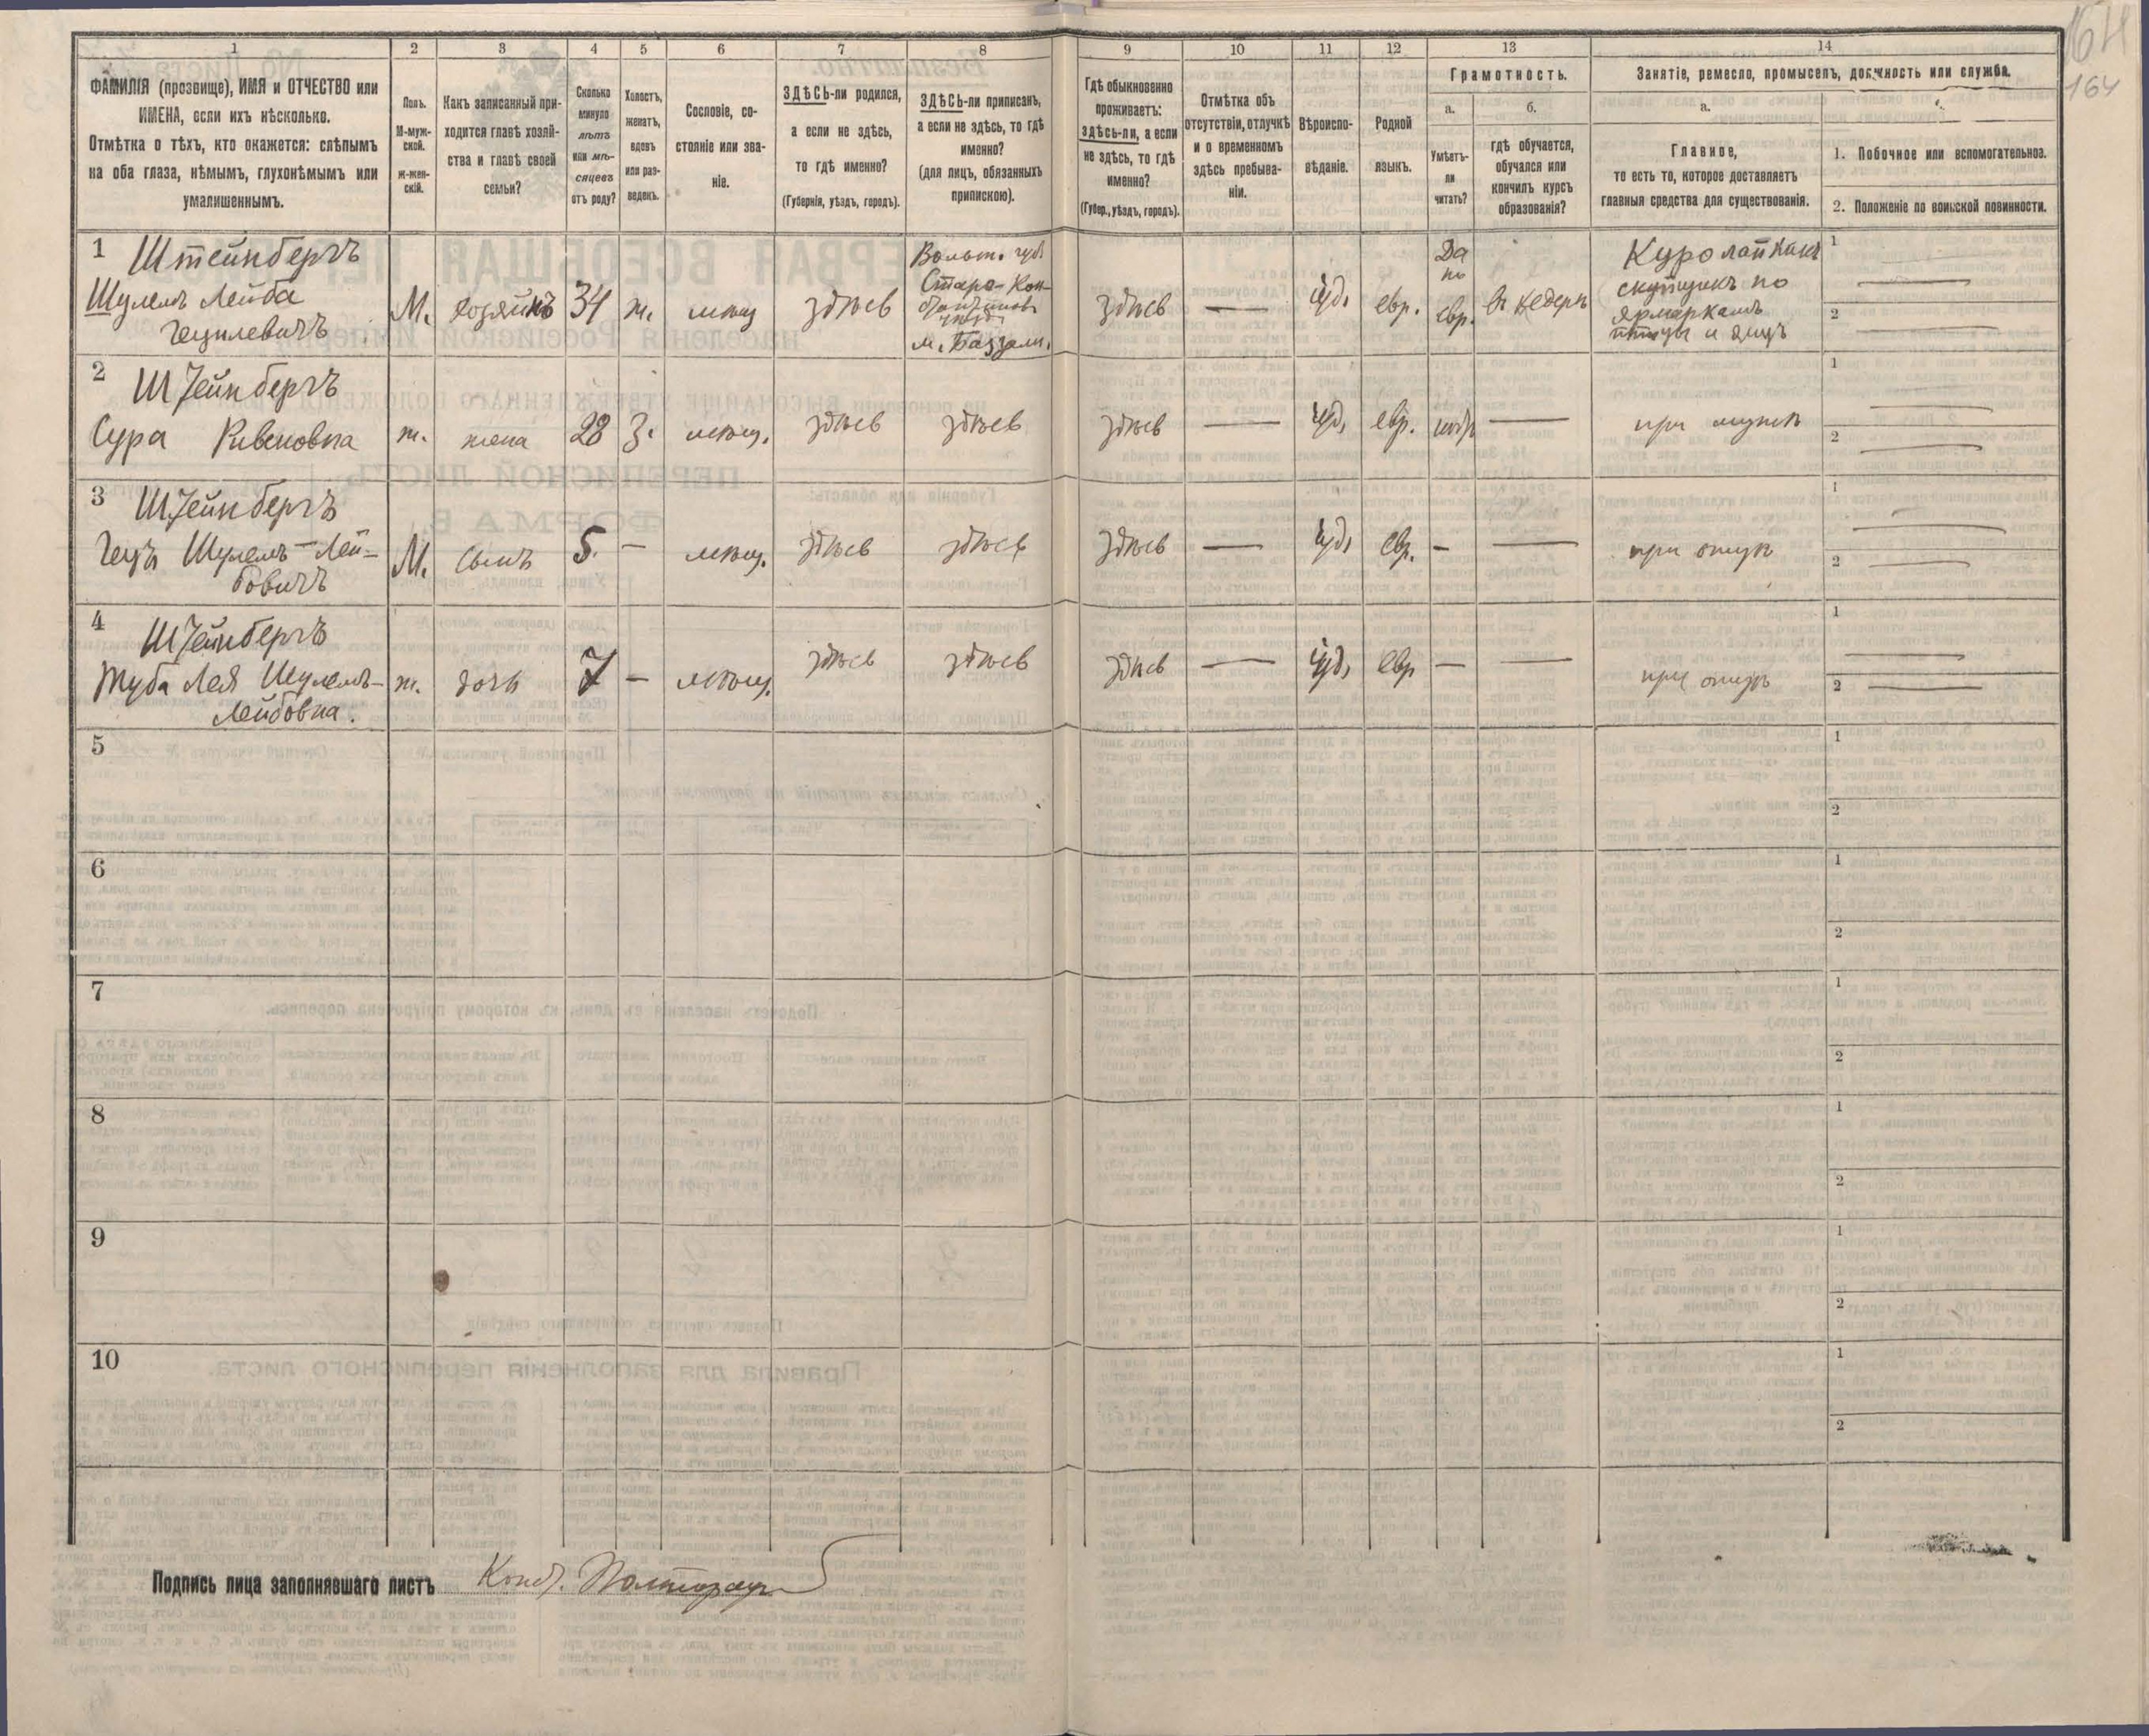 164
164
1
2
3
4
5
6
7
8
9
10
11
12
13
14
ФАМИЛІЯ (прозвище), ИМЯ и ОТЧЕСТВО или
ИМЕНА, если ихъ нѣсколько.
Отмѣтка о тѣхъ, кто окажется: слѣпымъ
на оба глаза, нѣмымъ, глухонѣмымъ или
умалишеннымъ.
Полъ.
М-муж-
ской.
ж-жен-
скій.
Какъ записанный при-
ходится главѣ хозяй-
ства и главѣ своей
семьи?
Сколько
минуло
лѣтъ
или мѣ-
сяцевъ
отъ роду?
Холостъ,
женатъ,
вдовъ
или раз-
веденъ.
Сословіе, со-
стояніе или зва-
ніе.
ЗДѢСЬ-ли родился,
а если не здѣсь,
то гдѣ именно?
(Губернія, уѣздъ, городъ).
ЗДѢСЬ-ли приписанъ,
а если не здѣсь, то гдѣ
именно?
(для лицъ, обязанныхъ
припискою).
Гдѣ обыкновенно
проживаетъ:
здѣсь-ли, а если
не здѣсь, то гдѣ
именно?
(Губер., уѣздъ, городъ).
Отмѣтка объ
отсутствіи, отлучкѣ
и о временномъ
здѣсь пребыва-
ніи.
Вѣроиспо-
вѣданіе.
Родной
языкъ.
Грамотность.
а.
Умѣетъ-
ли
читать?
б.
гдѣ обучается,
обучался или
кончилъ курсъ
образованія?
Занятіе, ремесло, промыселъ, должность или служба.
а.
Главное,
то есть то, которое доставляетъ
главныя средства для существованія.
1. Побочное или вспомогательное.
2. Положеніе по воинской повинности.
1
Штейнбергъ
Шулемъ Лейба
Гецилевичъ
М.
хозяинъ
34
ж.
мѣщ
здѣсь
Волын. губ
Старо-Кон-
м. Базалія
здѣсь
—
іуд.
евр.
Да
по
евр.
въ хедерѣ
скупщикъ по
ярмаркамъ
птицы и яицъ
1
—
2
—
2
Штейнбергъ
Сура Ривеновна
ж.
жена
28
З.
мѣщ.
здѣсь
здѣсь
здѣсь
—
іуд.
евр.
—
при мужѣ
1
—
2
—
3
Штейнбергъ
Гецъ Шулемъ-Лей-
бовичъ
М.
сынъ
5.
—
мѣщ.
здѣсь
здѣсь
здѣсь
—
іуд.
евр.
—
—
при отцѣ
1
—
2
—
4
Штейнбергъ
Туба Лея Шулемъ-
Лейбовна.
ж.
дочь
7
—
мѣщ.
здѣсь
здѣсь
здѣсь
—
іуд.
евр
—
—
при отцѣ
1
—
2
—
5
1
2
6
1
2
7
1
2
8
1
2
9
1
2
10
1
2
Подпись лица заполнявшаго листъ